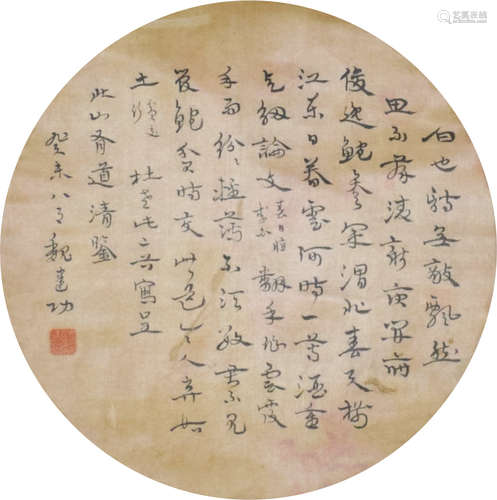 白也詩無敵飄然
思不群清新庾開府
俊逸鮑參軍渭北春天樹
江東日暮雲何時一尊酒重
與細論文 春日憶李白 翻手作雲覆
手雨紛紛輕薄不須數君不見
管鮑貧時交此道今人棄如
土 貧交行 杜老此二首寫呈
此山有道清鑒
癸未八月魏建功
艺典在线